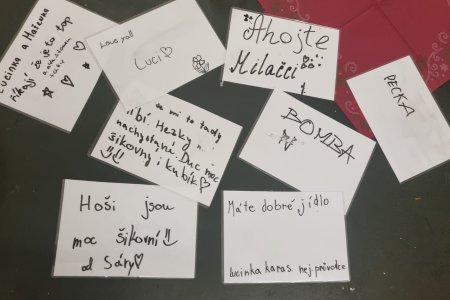 Lucinka a Mařenka
říkají že je to top
Love ya!!
Luci♡
Ahojte
Milačci
PECKA
BOMBA
líbí. Hezky
nachystané. Duc moc
šikovný i kubík♡
Hoši jsou
moc šikovní!!
od Sáry♡
Máte dobré jídlo
lucinka karas. nej. průvodce